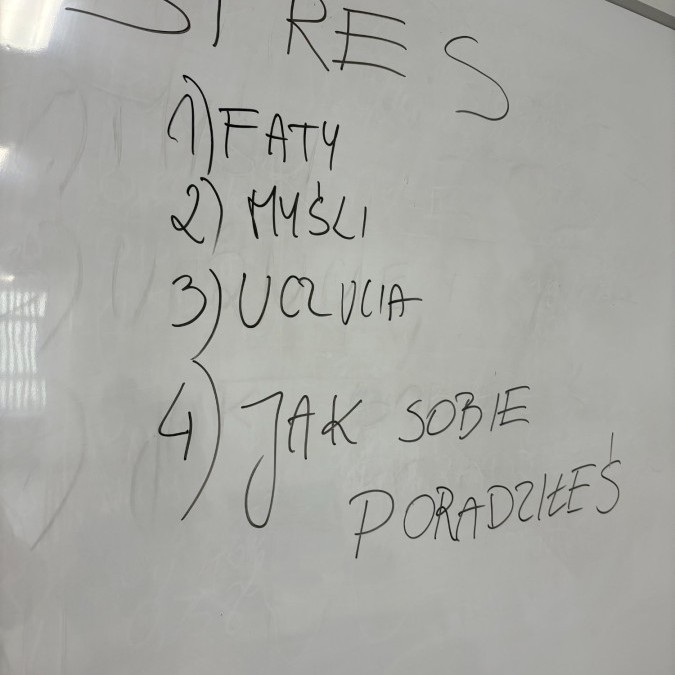 STRES
1) FATY
2) MYŚLI
3) UCZUCIA
4) JAK SOBIE
PORADZIŁEŚ